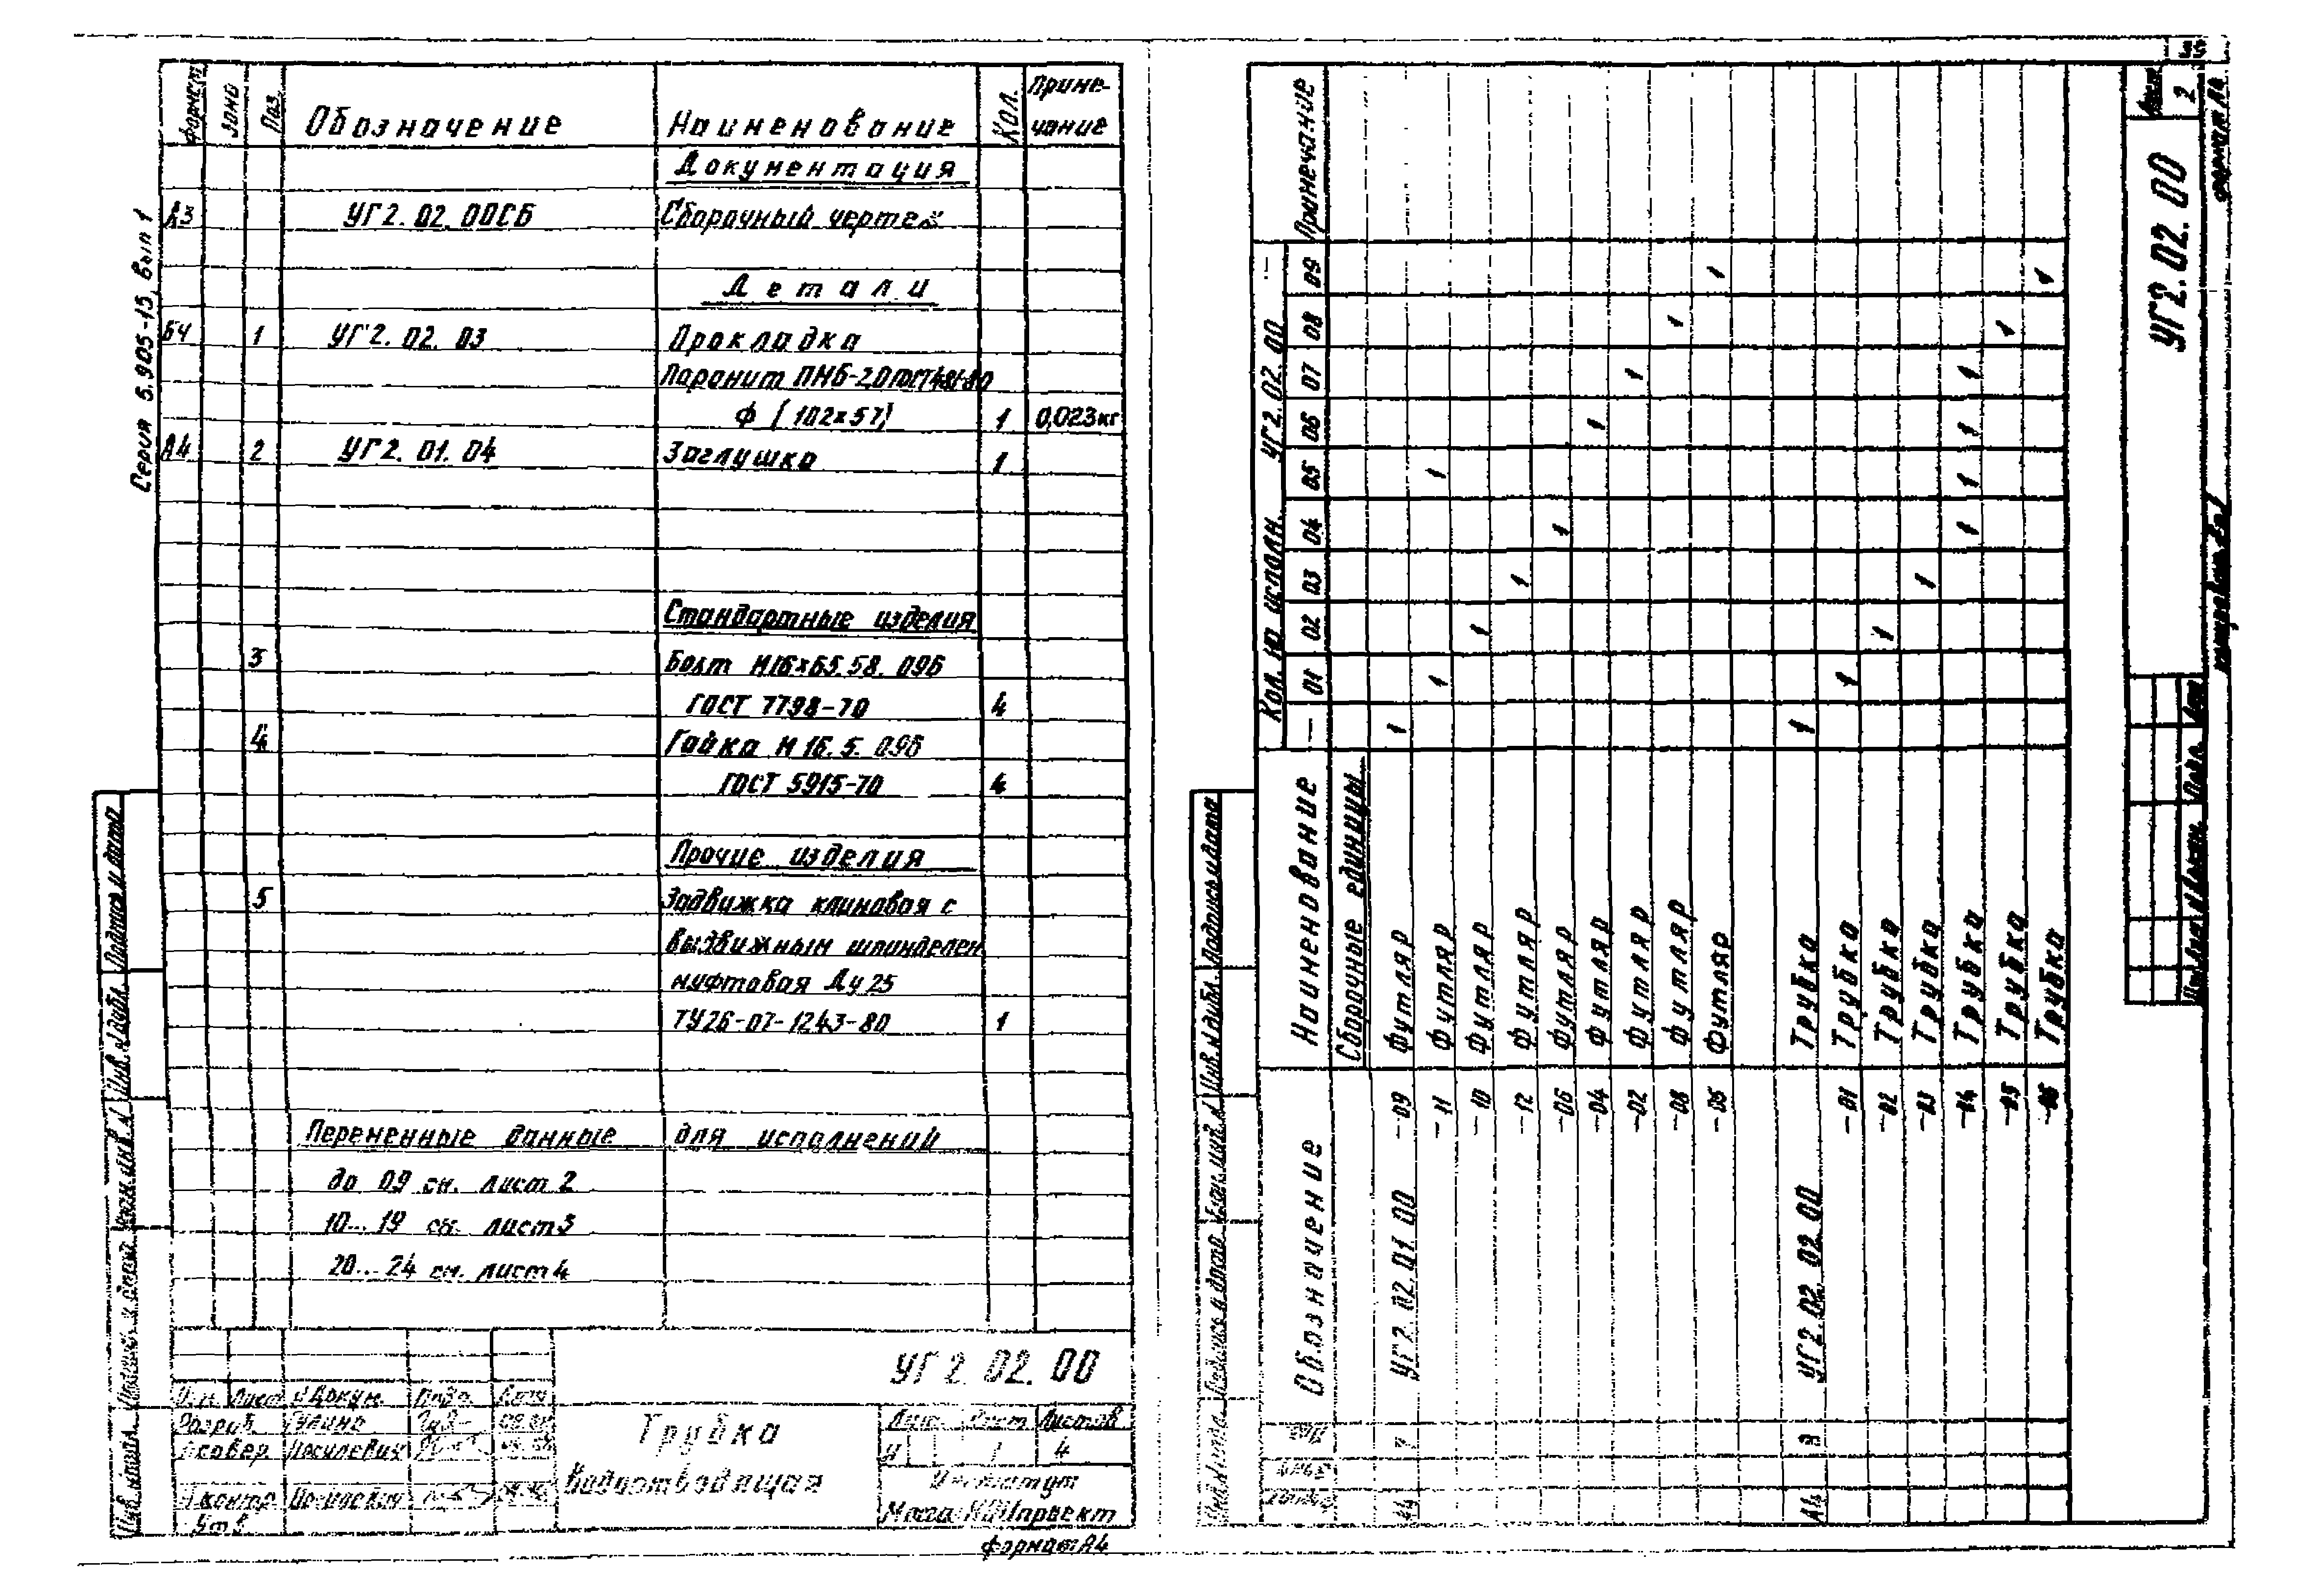 Серия 5.905-15 Вып 1
Формат Зона Поз. Обозначение Наименование Кол. Приме-
чание
Документация
А3 УГ2.02.00СБ Сборочный чертеж
Детали
БЧ 1 УГ2.02.03 Прокладка
Паронит ПМБ-2,0 ГОСТ481-80
Ф (102×57) 1 0,023кг
А4 2 УГ2.01.04 Заглушка 1
Стандартные изделия
3 Болт М16×65.58.096
ГОСТ 7798-70 4
4 Гайка М16.5.096
ГОСТ 5915-70 4
Прочие изделия
5 Задвижка клиновая с
выдвижным шпинделем
муфтовая Ду25
ТУ26-07-1243-80 1
Переменные данные для исполнений
до 09 см. лист 2
10...19 см. лист 3
20...24 см. лист 4
УГ2.02.00
Изм. Лист № докум. Подп. Дата
Разраб.
Провер. Василевич
Н.контр
Утв
Трубка
водоотводящая
Лит. Лист Листов
И 1 4
Институт
МосгазНИИпроект
Формат А4
Инв.№ подл. Подпись и дата Взам.инв.№ Инв.№ дубл. Подпись и дата
Обозначение Наименование Кол. на исполн. УГ2.02.00 — Примечание
— 01 02 03 04 05 06 07 08 09
Сборочные единицы
А4 УГ2.02.01.00 -09 Футляр 1
-11 Футляр 1 1
-10 Футляр 1
-12 Футляр 1
-06 Футляр 1
-04 Футляр 1
-02 Футляр 1
-08 Футляр 1
-05 Футляр 1
А4 УГ2.02.02.00 Трубка 1
-01 Трубка 1
-02 Трубка 1
-03 Трубка 1
-04 Трубка 1 1 1 1
-05 Трубка 1
-06 Трубка 1
Подпись и дата Взам.инв.№ Инв.№ дубл. Подпись и дата
УГ2.02.00
Лист
2
Изм. Лист № докум. Подп. Дата
Формат А4